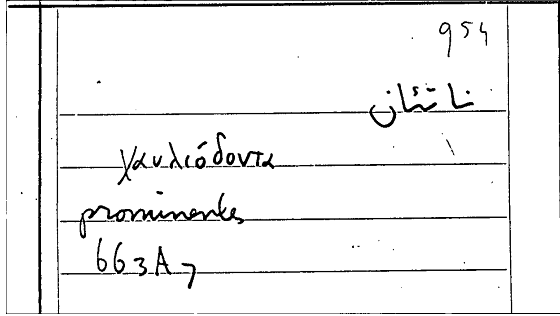 954
ناتئان
χαυλιόδοντα
prominentes
663A7